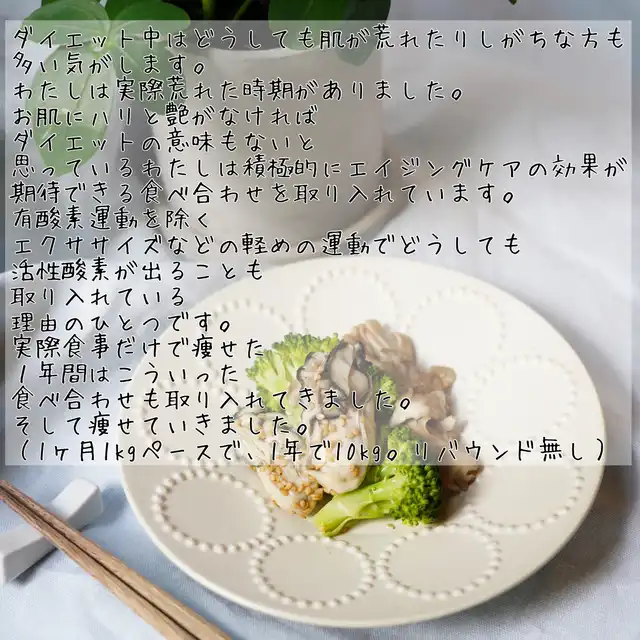 ダイエット中はどうしても肌が荒れたりしがちな方も
多い気がします。
わたしは実際荒れた時期がありました。
お肌にハリと艶がなければ
ダイエットの意味もないと
思っているわたしは積極的にエイジングケアの効果が
期待できる食べ合わせを取り入れています。
有酸素運動を除く
エクササイズなどの軽めの運動でどうしても
活性酸素が出ることも
取り入れている
理由のひとつです。
実際食事だけで痩せた
1年間はこういった
食べ合わせも取り入れてきました。
そして痩せていきました。
(1ヶ月1kgペースで、1年で10kg。リバウンド無し)